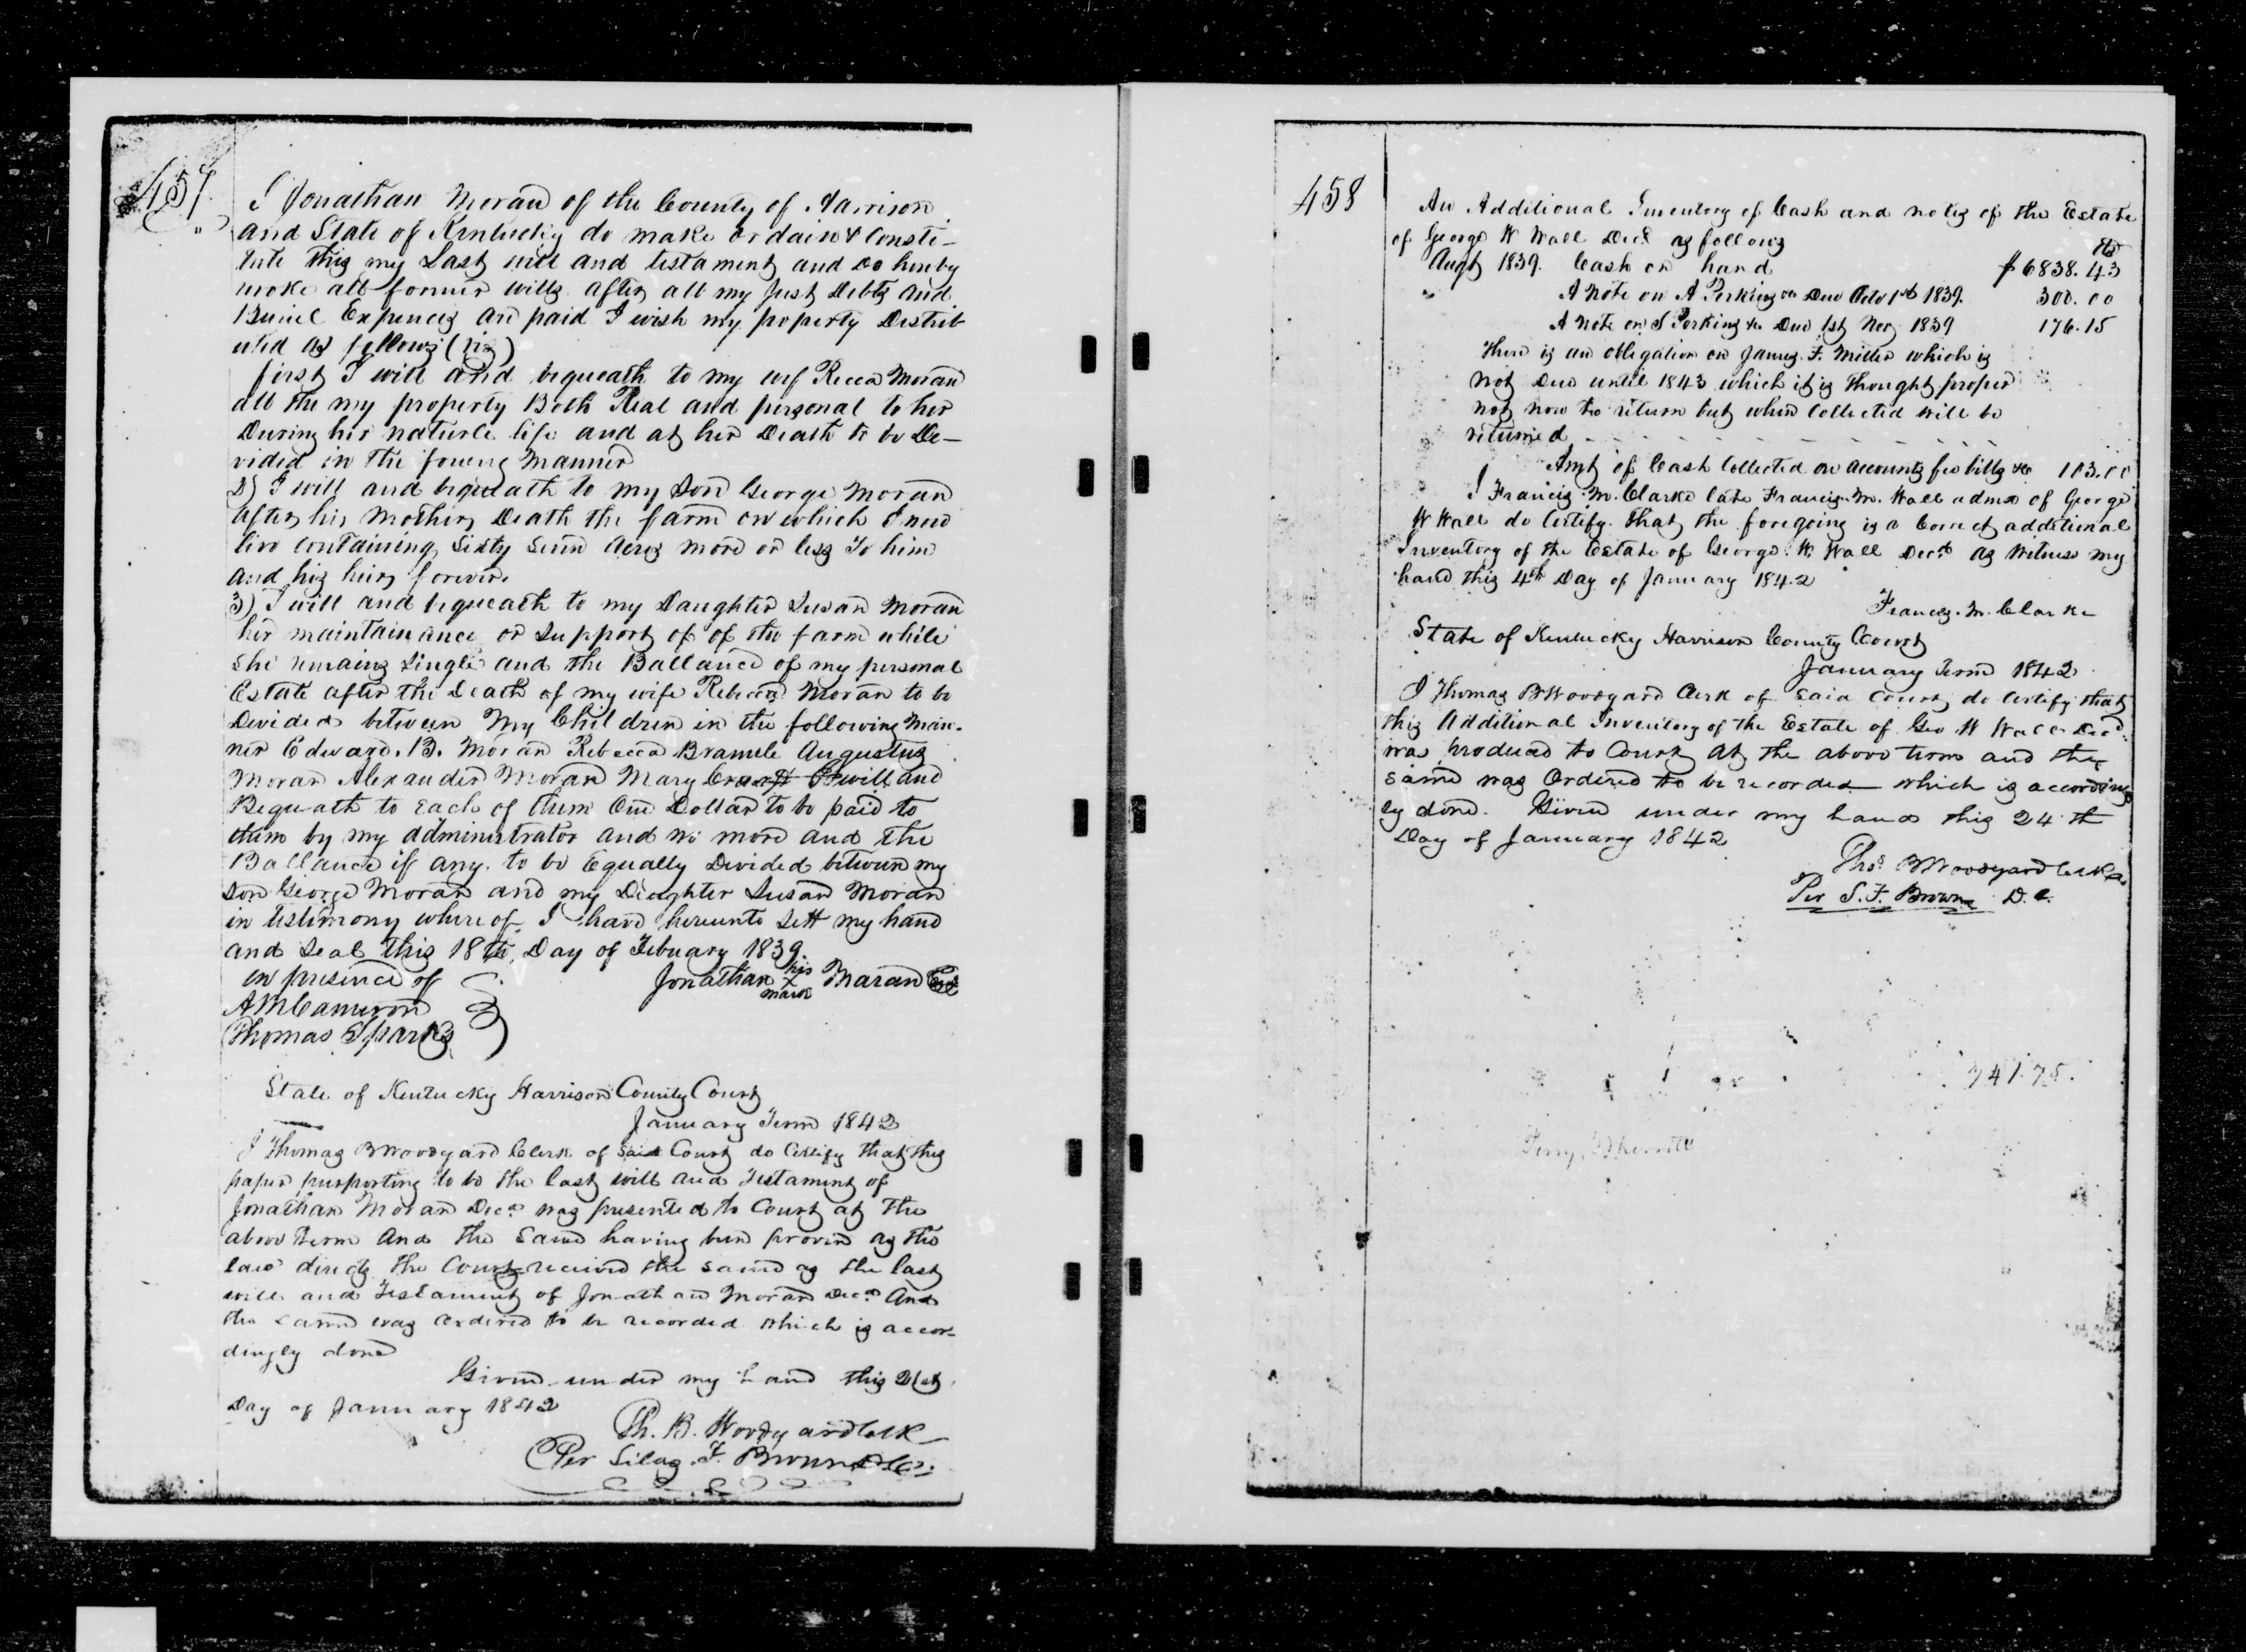 457
I Jonathan Moran of the County of Harrison
and State of Kentucky do make ordain & Consti-
tute this my Last will and testament and Do hereby
revoke all former wills after all my Just Debts and
Buriel Expences are paid I wish my poperty Distrib
uted as follows (viz)
first I will and bequeath to my wif Recca Moran
all the my property Both Real and personal to her
During her naturle life and at her Death to be De-
vided in the foueng manner
2) I will and bequeath to my Son George Moran
after his Mothers Death the farm on which I now
live containing Sixty Seven Acres more or less To him
and his heirs forever.
3) I will and bequeath to my Daughter Susan Moran
her maintainance or Support of of the farm while
She remains Single and the Ballance of my personal
Estate after the Death of my wife Rebecca Moran to be
Devided between My Children in the following Man-
ner Edward. B. Moran Rebecca Bramle Augustus
Moran Alexander Moran Mary I will and
Bequeath to Each of them One Dollar to be paid to
them by my administrator and no more and the
Ballance if any. to be Equally Devided between my
Son George Moran and my Daughter Susan Moran
in testimony where of I have hereunto Sett my hand
and Seal this 18th Day of Febuary 1839
in presence of Jonathan his X mark Maran Seal
A M Cameron
Thomas Sparks
State of Kentucky Harrison County Court
January Term 1842
I Thomas B Woodyard Clerk of Said Court do Certify that this
paper purporting to be the last will and Testament of
Jonathan Moran Decd was presented to Court at the
above Term And the Same having been proven as the
law directs the Court received the same as the last
will and Testament of Jonathan Moran Decd And
the same was ordered to be recorded which is accor-
dingly done
Given under my hand this 21st
Day of January 1842
Th. B. Woodyard Clk
Per Silas. F. Brown D.C.
458
An Additional Inventory of Cash and notes of the Estate
of George W Wall Decd as follows
Augt 1839. Cash on hand $6838.43
" A Note on A Perkins Due Octo 1st 1839. 300.00
A Note on S Perkins &c Due 1st Nov 1839 176.15
There is an obligation on James. F. Miller which is
not Due until 1843 which it is thought proper
not now to return but when Collected will be
returned
Amt of Cash Collected on accounts fee bills &c 103.00
I Francis. M. Clarke late Francis. M. Wall admx of George
W Wall do Certify. That the foregoing is a Correct additional
Inventory of the Estate of George. W. Wall Decd as Witness my
hand this 4th Day of January 1842
Francis. M. Clarke
State of Kentucky Harrison County Court
January Term 1842
I Thomas B Woodyard Clerk of said Court do Certify that
this Additional Inventory of the Estate of Geo W Wall Decd
was produced to Court at the above term and the
same was Ordered to be recorded which is according
ly done. Given under my hand this 24th
Day of January 1842
Thos. B Woodyard Clk
Per S. F. Brown D. C.
741.75.